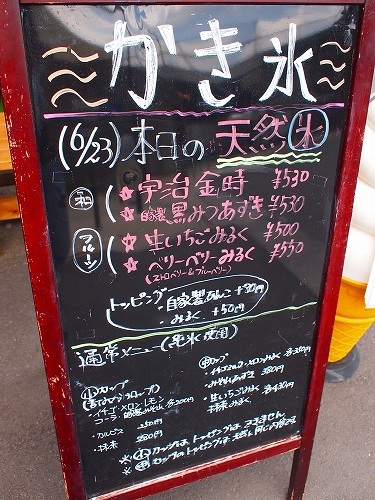 かき氷
(6/23) 本日の 天然氷
和
★宇治金時 ¥530
★自家製黒みつあずき ¥530
フルーツ
★生いちごみるく ¥500
★ベリーベリーみるく ¥550
(ストロベリー&ブルーベリー)
トッピング
・自家製あんこ +80円
・みるく +50円
通常メニュー(純氷使用)
小カップ
・イチゴ・メロン・レモン
・カルピス 250円
・抹茶 280円
中カップ
・生いちごみるく 各430円
抹茶みるく
※小カップはトッピングはできません。